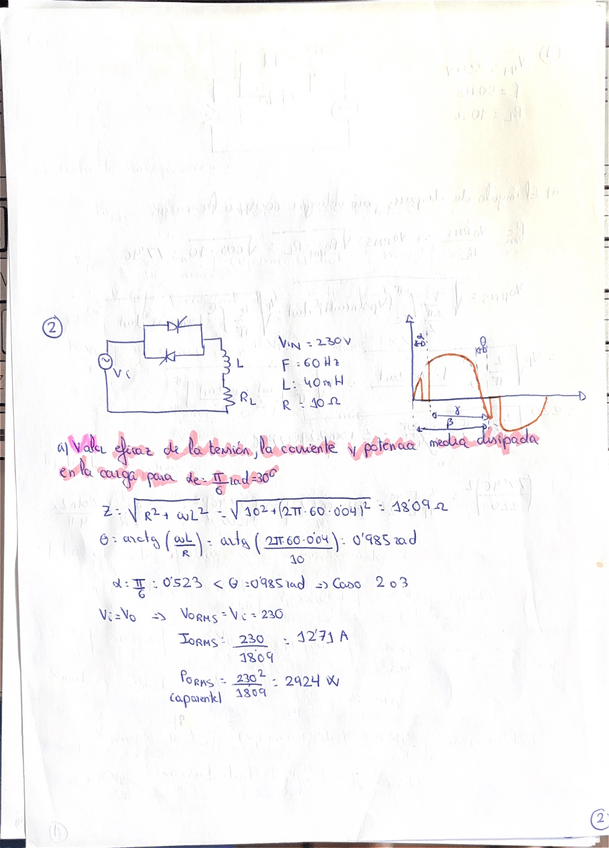 ②
Vi
L
RL
VIN = 230V
F: 60Hz
L: 40mH
R: 10Ω
α
θ
γ
β
a) Valor eficaz de la tensión, la corriente y potencia media disipada
en la carga para α = π/6 rad = 30°
Z = √(R² + ωL²) = √(10² + (2π·60·0'04)²) = 18'09 Ω
θ = arctg (ωL/R) = artg (2π60·0'04/10) = 0'985 rad
α = π/6 = 0'523 < θ = 0'985 rad ⇒ Caso 2 o 3
Vi = Vo ⇒ VORMS = Vi = 230
IORMS = 230/18'09 = 12'71 A
PORMS = 230²/18'09 = 2924 W
(aparente)
2